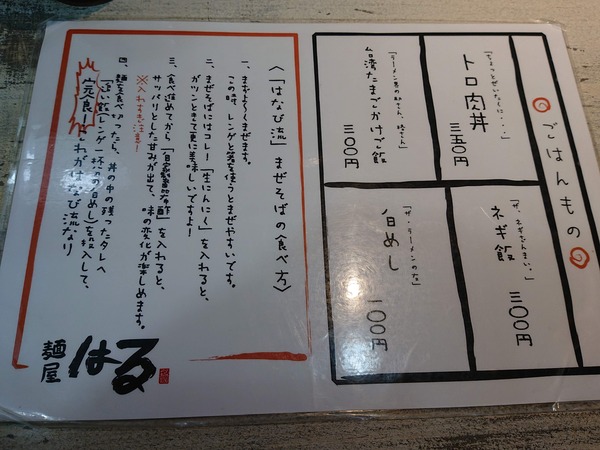 ごはんもの
「ちょっとぜいたくに・・・」
トロ肉丼
三五〇円
「ザ、ネギざんまい。」
ネギ飯
三〇〇円
台湾たまごかけご飯
三〇〇円
「ザ・ラーメンの友」
白めし
一〇〇円
〈「はなび流」まぜそばの食べ方〉
一、まずよ〜くまぜます。
この時、レンゲと箸を使うとまぜやすいです。
二、まぜそばにはコレ!「生にんにく」を入れると、
ガツンときて更に美味しいですよ!
三、食べ進めてから「自家製昆布酢」を入れると、
サッパリとした甘みが出て、味の変化が楽しめます。
※入れすぎ注意!
四、麺を食べ切ったら、丼の中の残ったタレへ
「追い飯(レンゲ一杯の白めし)を投入して、
完食!これがはなび流なり
麺屋はる